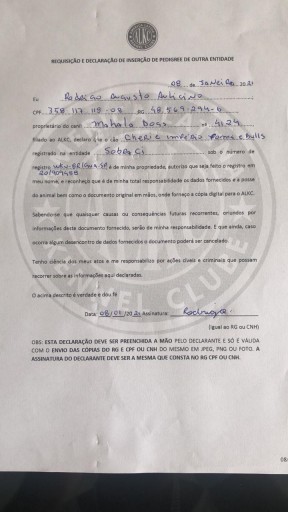 ALKC
REQUISIÇÃO E DECLARAÇÃO DE INSERÇÃO DE PEDIGREE DE OUTRA ENTIDADE
08 de Janeiro 2021
Eu Rodrigo Augusto
CPF 358 117 RG 48.569.294-0
proprietário do canil nº 4124
filiado ao ALKC, declaro que o cão Cherie Bulls
registrado na entidade Sobraci sob o número de
registro é de minha propriedade, autorizo que seja feito o registro em
meu nome, e reconheço que é da minha total responsabilidade os dados fornecidos e a posse
do animal bem como o documento original em mãos, onde forneço a cópia digital para a ALKC.
Sabendo-se que quaisquer causas ou consequências futuras recorrentes, oriundos por
informações deste documento fornecido, serão de minha responsabilidade. E que ainda, caso
ocorra algum desencontro de dados fornecidos o documento poderá ser cancelado.
Tenho ciência dos meus atos e me responsabilizo por ações cíveis e criminais que possam
recorrer sobre as informações aqui declaradas.
O acima descrito é verdade e dou fé
Data: 08/01/2021 Assinatura: Rodrigo
(Igual ao RG ou CNH)
OBS: ESTA DECLARAÇÃO DEVE SER PREENCHIDA A MÃO PELO DECLARANTE E SÓ É VÁLIDA
COM O ENVIO DAS CÓPIAS DO RG E CPF OU CNH DO MESMO EM JPEG, PNG OU FOTO. A
ASSINATURA DO DECLARANTE DEVE SER A MESMA QUE CONSTA NO RG CPF OU CNH.
KENNEL CLUBE
08